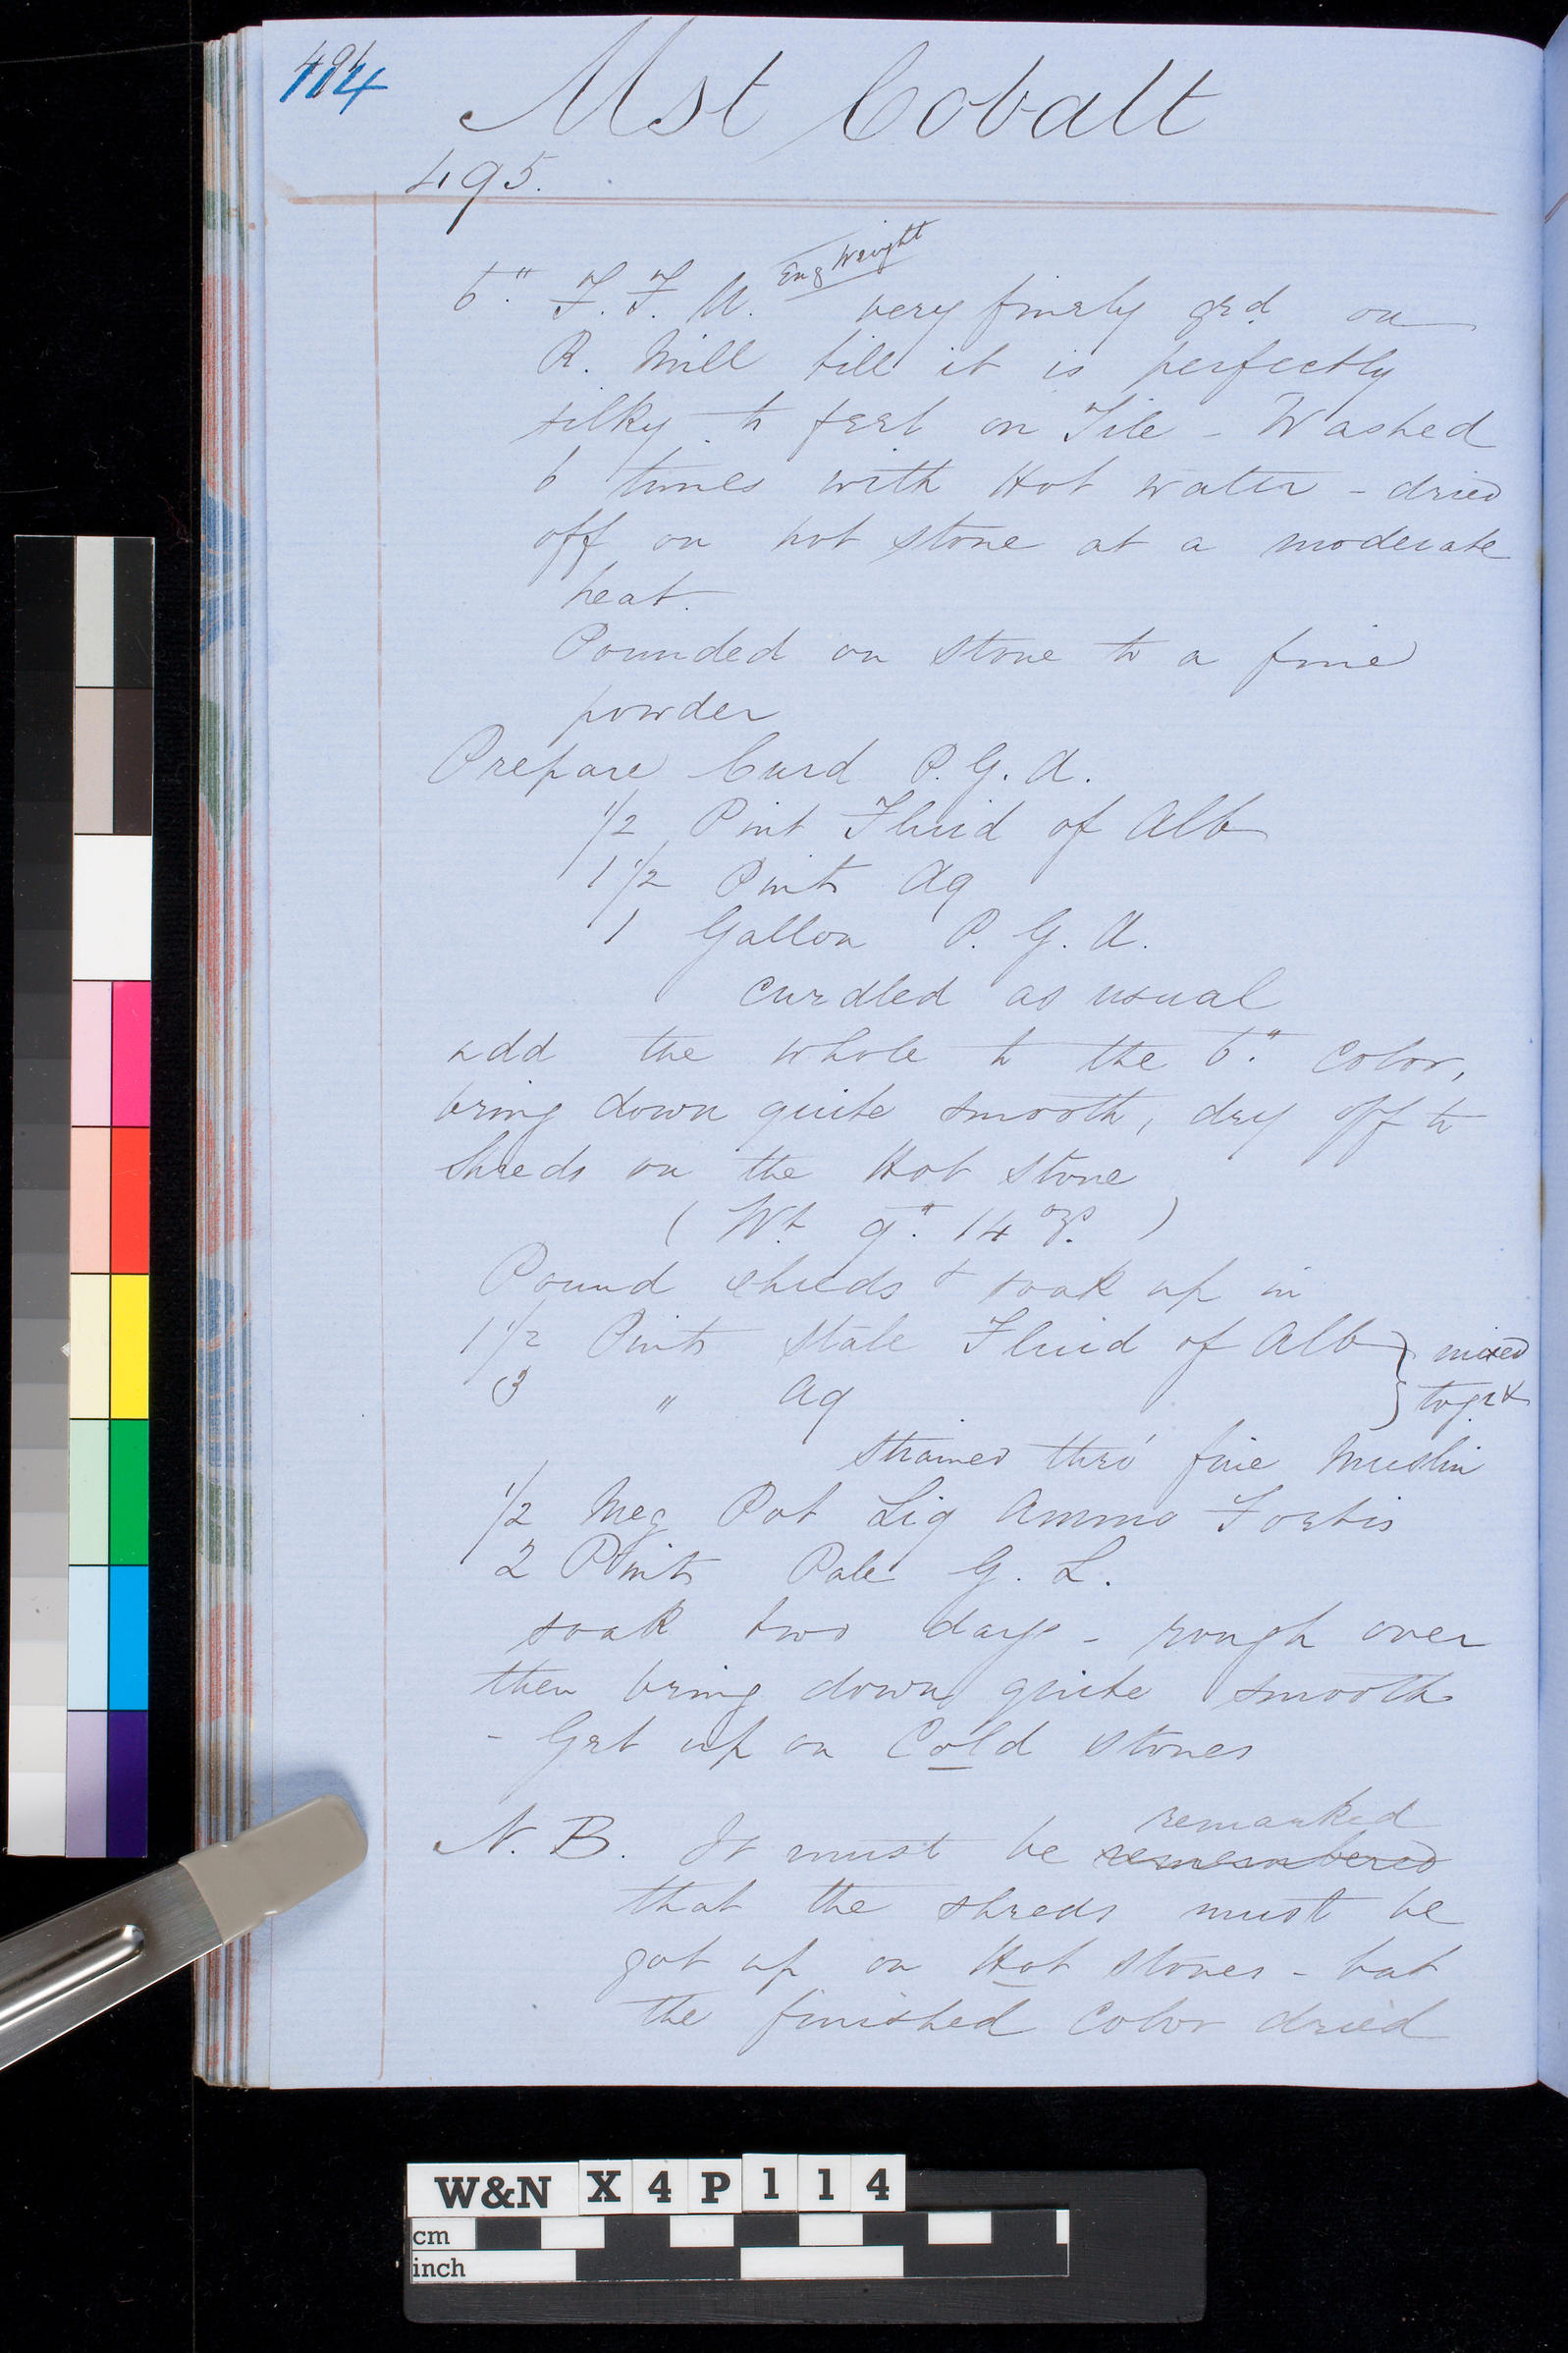 114
Mst Cobalt
495.
6." F. F. U. Eng Weight very finely grd on
R. Mill till it is perfectly
silky to feel on Tile - Washed
6 times with Hot water - dried
off on hot stone at a moderate
heat.
Pounded on stone to a fine
powder
Prepare Curd P. G. A.
1/2 Pint Fluid of Alb
1 1/2 Pints Aq
1 Gallon P. G. A.
curdled as usual
add the whole to the 6." color,
bring down quite smooth, dry off to
Shreds on the Hot Stone
( Wt. 9." 14 ozs. )
Pound shreds & soak up in
1 1/2 Pints stale Fluid of Alb } mixed
3 " Aq } toget
strained thro' fine Muslin
1/2 Meg Pot Liq Ammo Fortis
2 Pints Pale G. L.
soak two days - rough over
then bring down quite smooth
- Get up on Cold stones
remarked
N. B. It must be remembered
that the shreds must be
got up on Hot stones - but
the finished color dried
W&N X 4 P 1 1 4
cm
inch